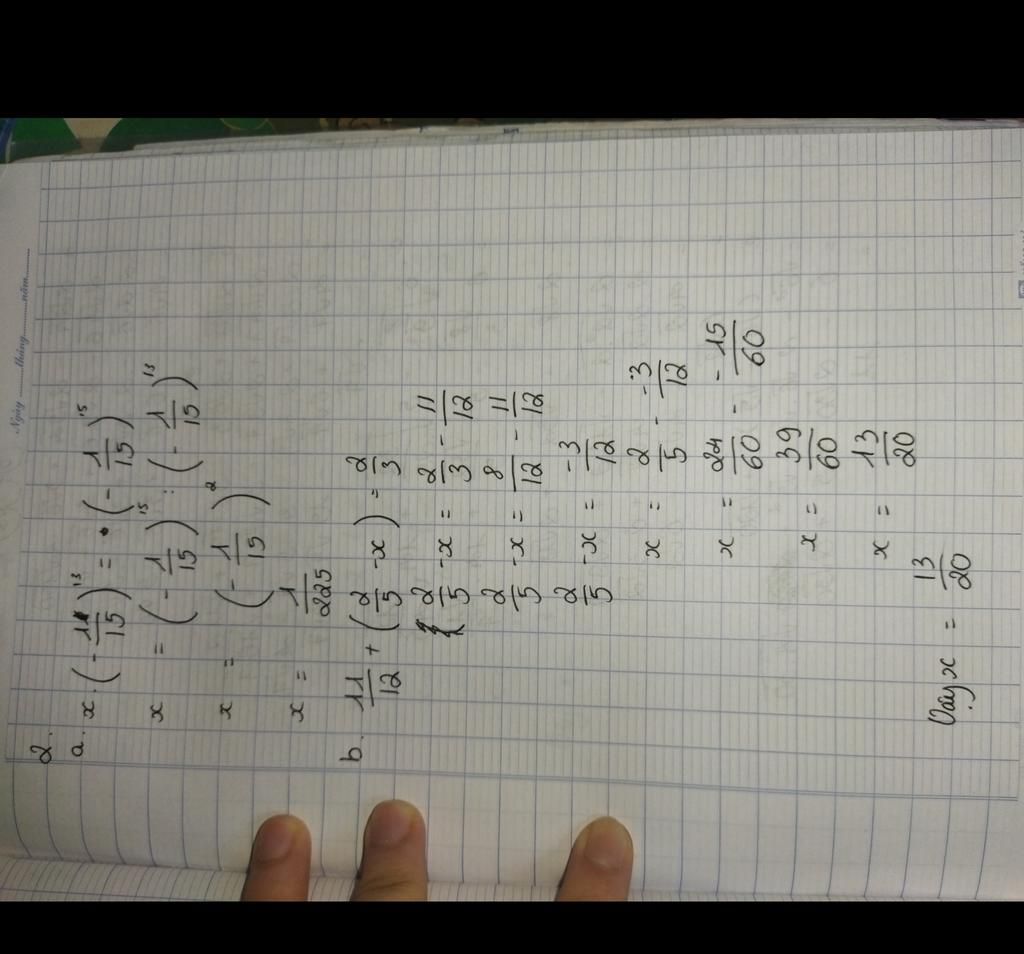 Ngày ........ tháng ........ năm ........
2.
a. x . (- 1/15)^13 = (- 1/15)^15
x = (- 1/15)^15 : (- 1/15)^13
x = (- 1/15)^2
x = 1/225
b. 11/12 + (2/5 - x) = 2/3
2/5 - x = 2/3 - 11/12
2/5 - x = 8/12 - 11/12
2/5 - x = -3/12
x = 2/5 - -3/12
x = 24/60 - -15/60
x = 39/60
x = 13/20
Vậy x = 13/20